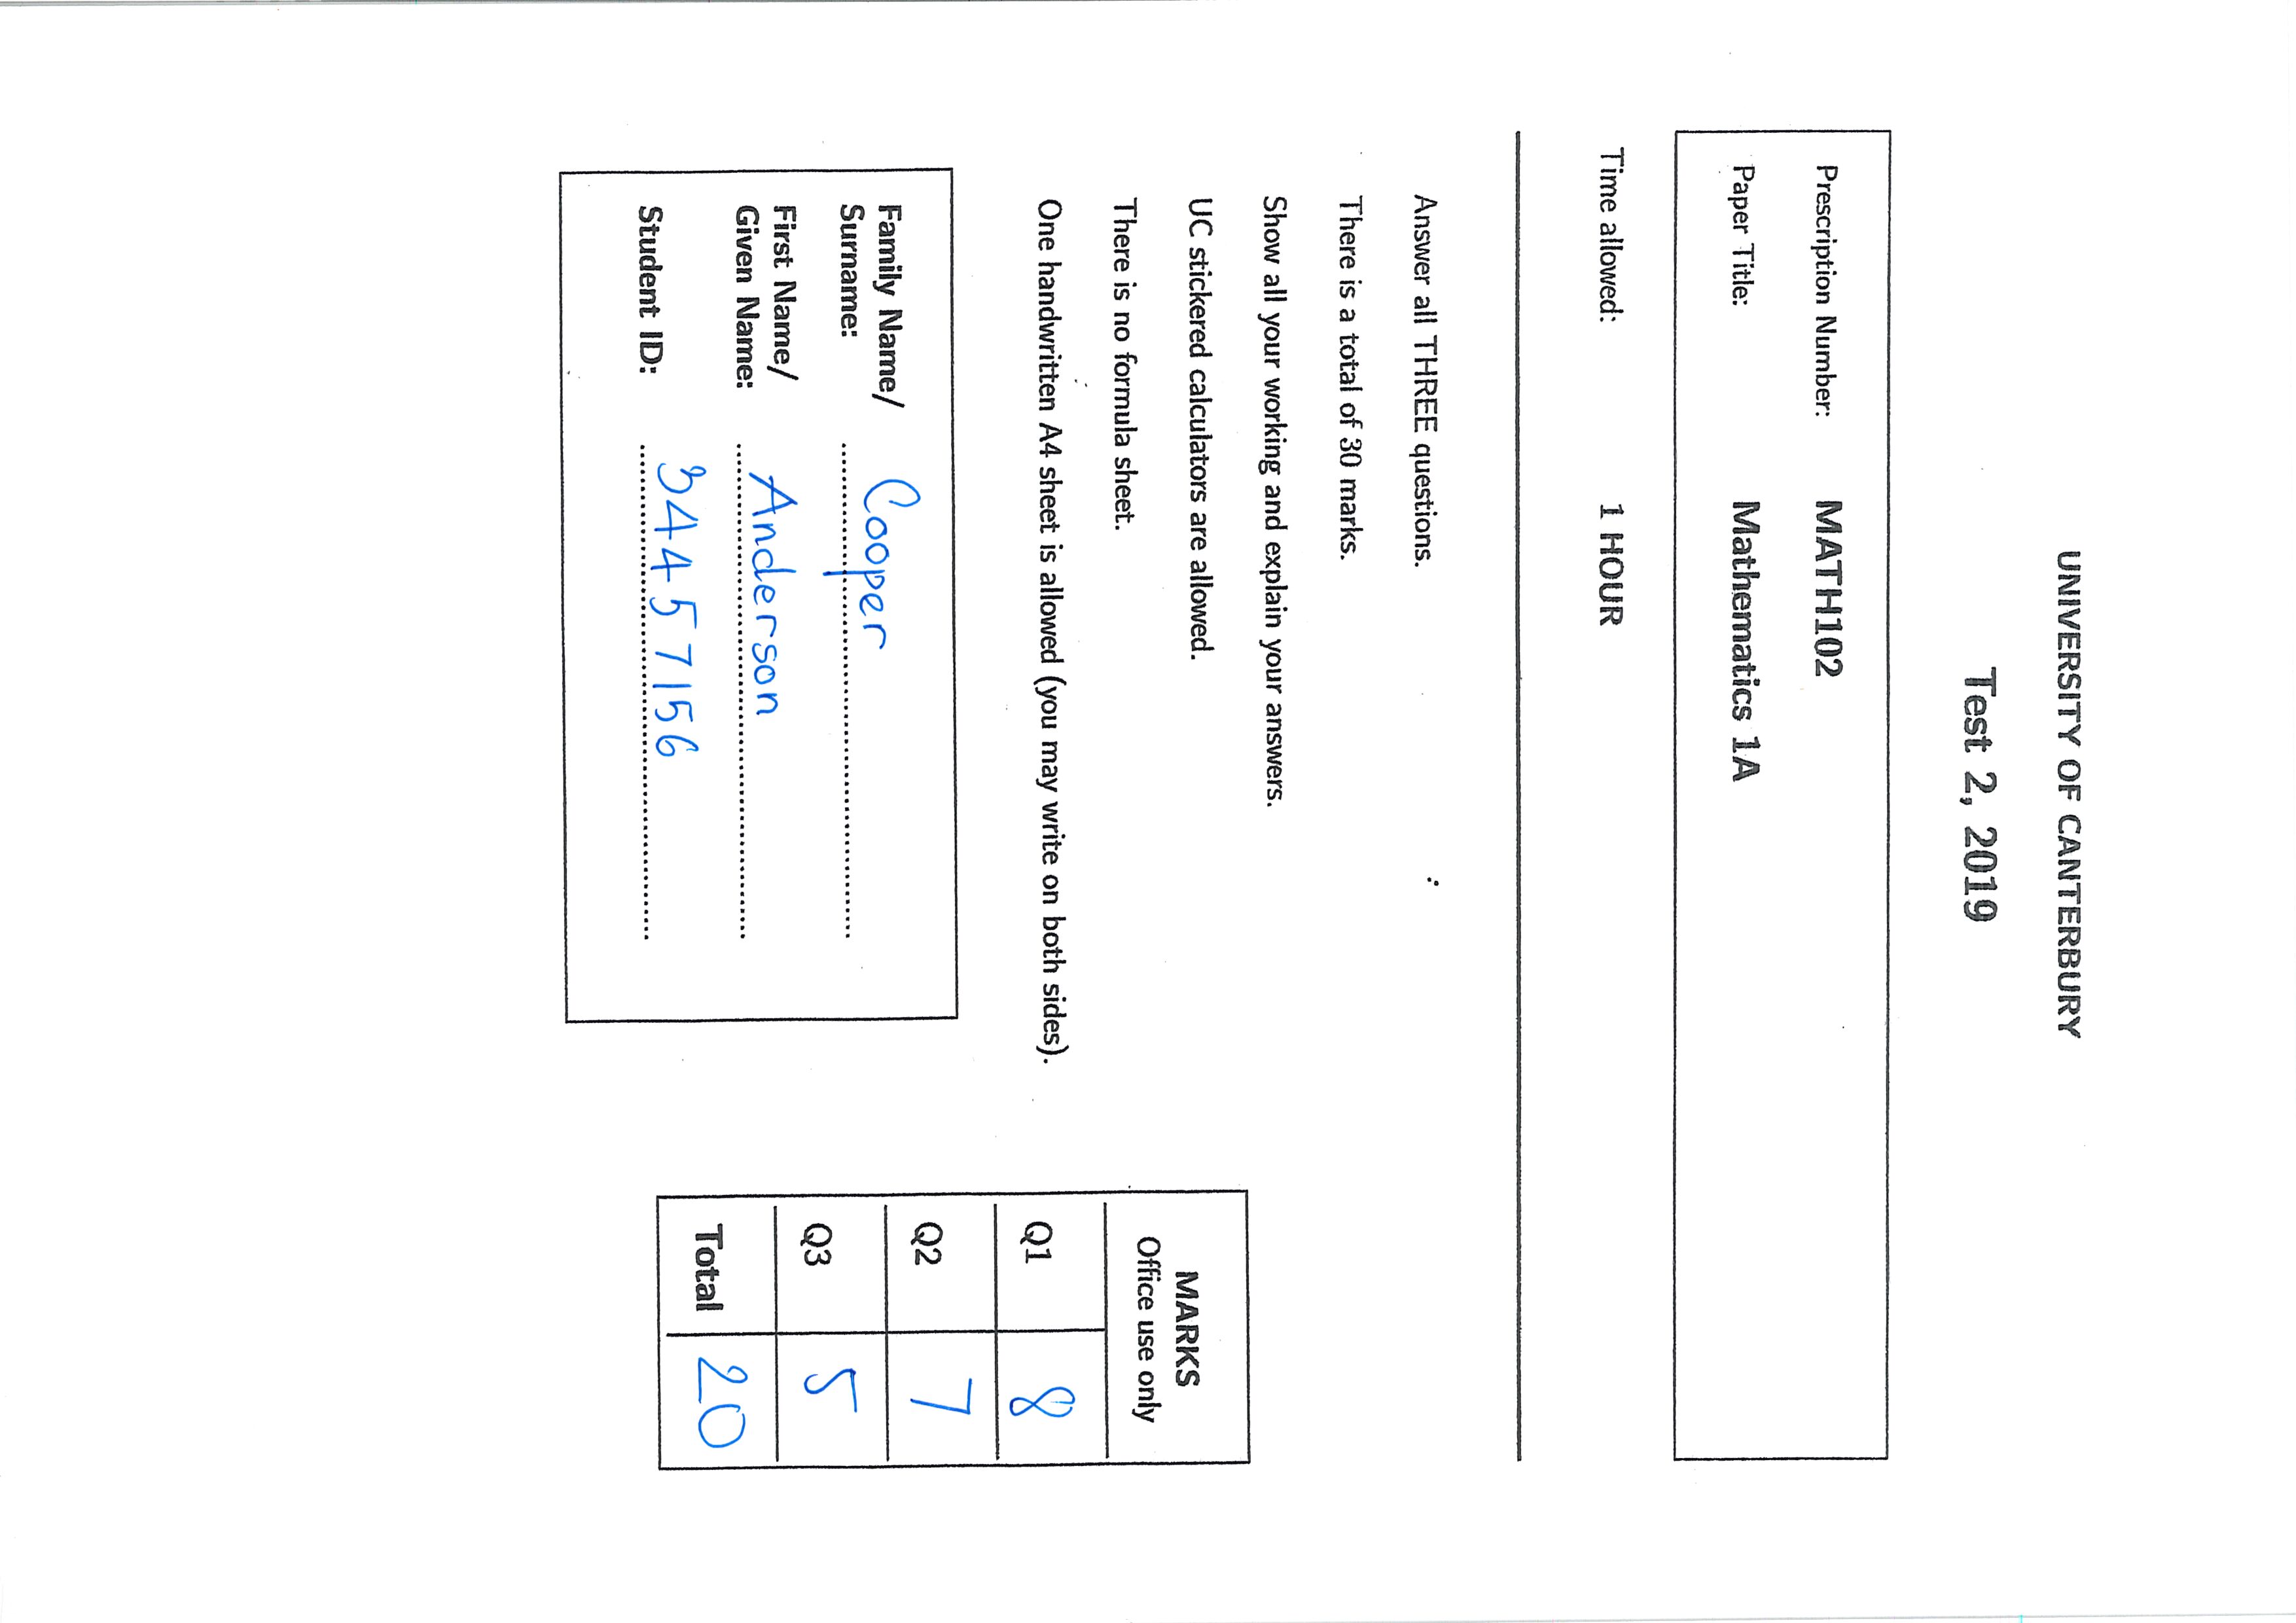 UNIVERSITY OF CANTERBURY
Test 2, 2019
Prescription Number: MATH102
Paper Title: Mathematics 1A
Time allowed: 1 HOUR
Answer all THREE questions.
There is a total of 30 marks.
Show all your working and explain your answers.
UC stickered calculators are allowed.
There is no formula sheet.
One handwritten A4 sheet is allowed (you may write on both sides).
MARKS
Office use only
Q1 8
Q2 7
Q3 5
Total 20
Family Name/
Surname: Cooper
First Name/
Given Name: Anderson
Student ID: 34457156